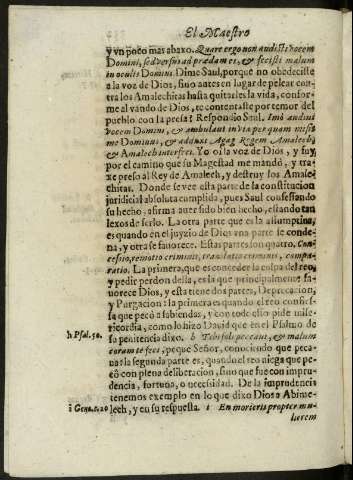 El Maestro
y vn poco mas abaxo. Quare ergo non audisti vocem
Domini, sed versus ad prædam es, & fecisti malum
in oculis Domini Dime Saul, porque no obedeciste
a la voz de Dios, sino antes en lugar de pelear contra
los Amalechitas hasta quitarles la vida, conforme
al vando de Dios, te contentaste por temor del
pueblo con la presa? Respondio Saul. Imò audiui
vocem Domini, & ambulaui in via per quam misit
me Dominus, & adduxi Agag Regem Amalech,
& Amalech interfeci. Yo oi la voz de Dios, y fuy
por el camino que su Magestad me mandó, y traxe
preso al Rey de Amalech, y destruy los Amalechitas.
Donde se vee esta parte de la constitucion
juridicial absoluta cumplida, pues Saul confessando
su hecho, afirma auer sido bien hecho, estando tan
lexos de serlo. La otra parte que es la assumptiua,
es quando en el juyzio de Dios vna parte se condena,
y otra se fauorece. Estas partes son quatro, Concessio,
remotio criminis, translatio criminis, comparatio.
La primera, que es conceder la culpa del reo,
y pedir perdon della, es la que principalmente fauorece
Dios, y esta tiene dos partes, Deprecacion,
y Purgacion: la primera es quando el reo confiessa
que pecò a sabiendas, y con todo esso pide misericordia,
como lo hizo Dauid en el Psalmo de
h Psal. 50. su penitencia dixo. h Tibi soli peccaui, & malum
coram te feci, peque Señor, conociendo que pecaua:
la segunda parte es, quando el reo niega que pecò
con plena deliberacion, sino que fue con imprudencia,
fortuna, o necessidad. De la imprudencia
tenemos exemplo en lo que dixo Dios a Abimelech,
i Gene. c. 20 y en su respuesta. i En morieris propter mulierem